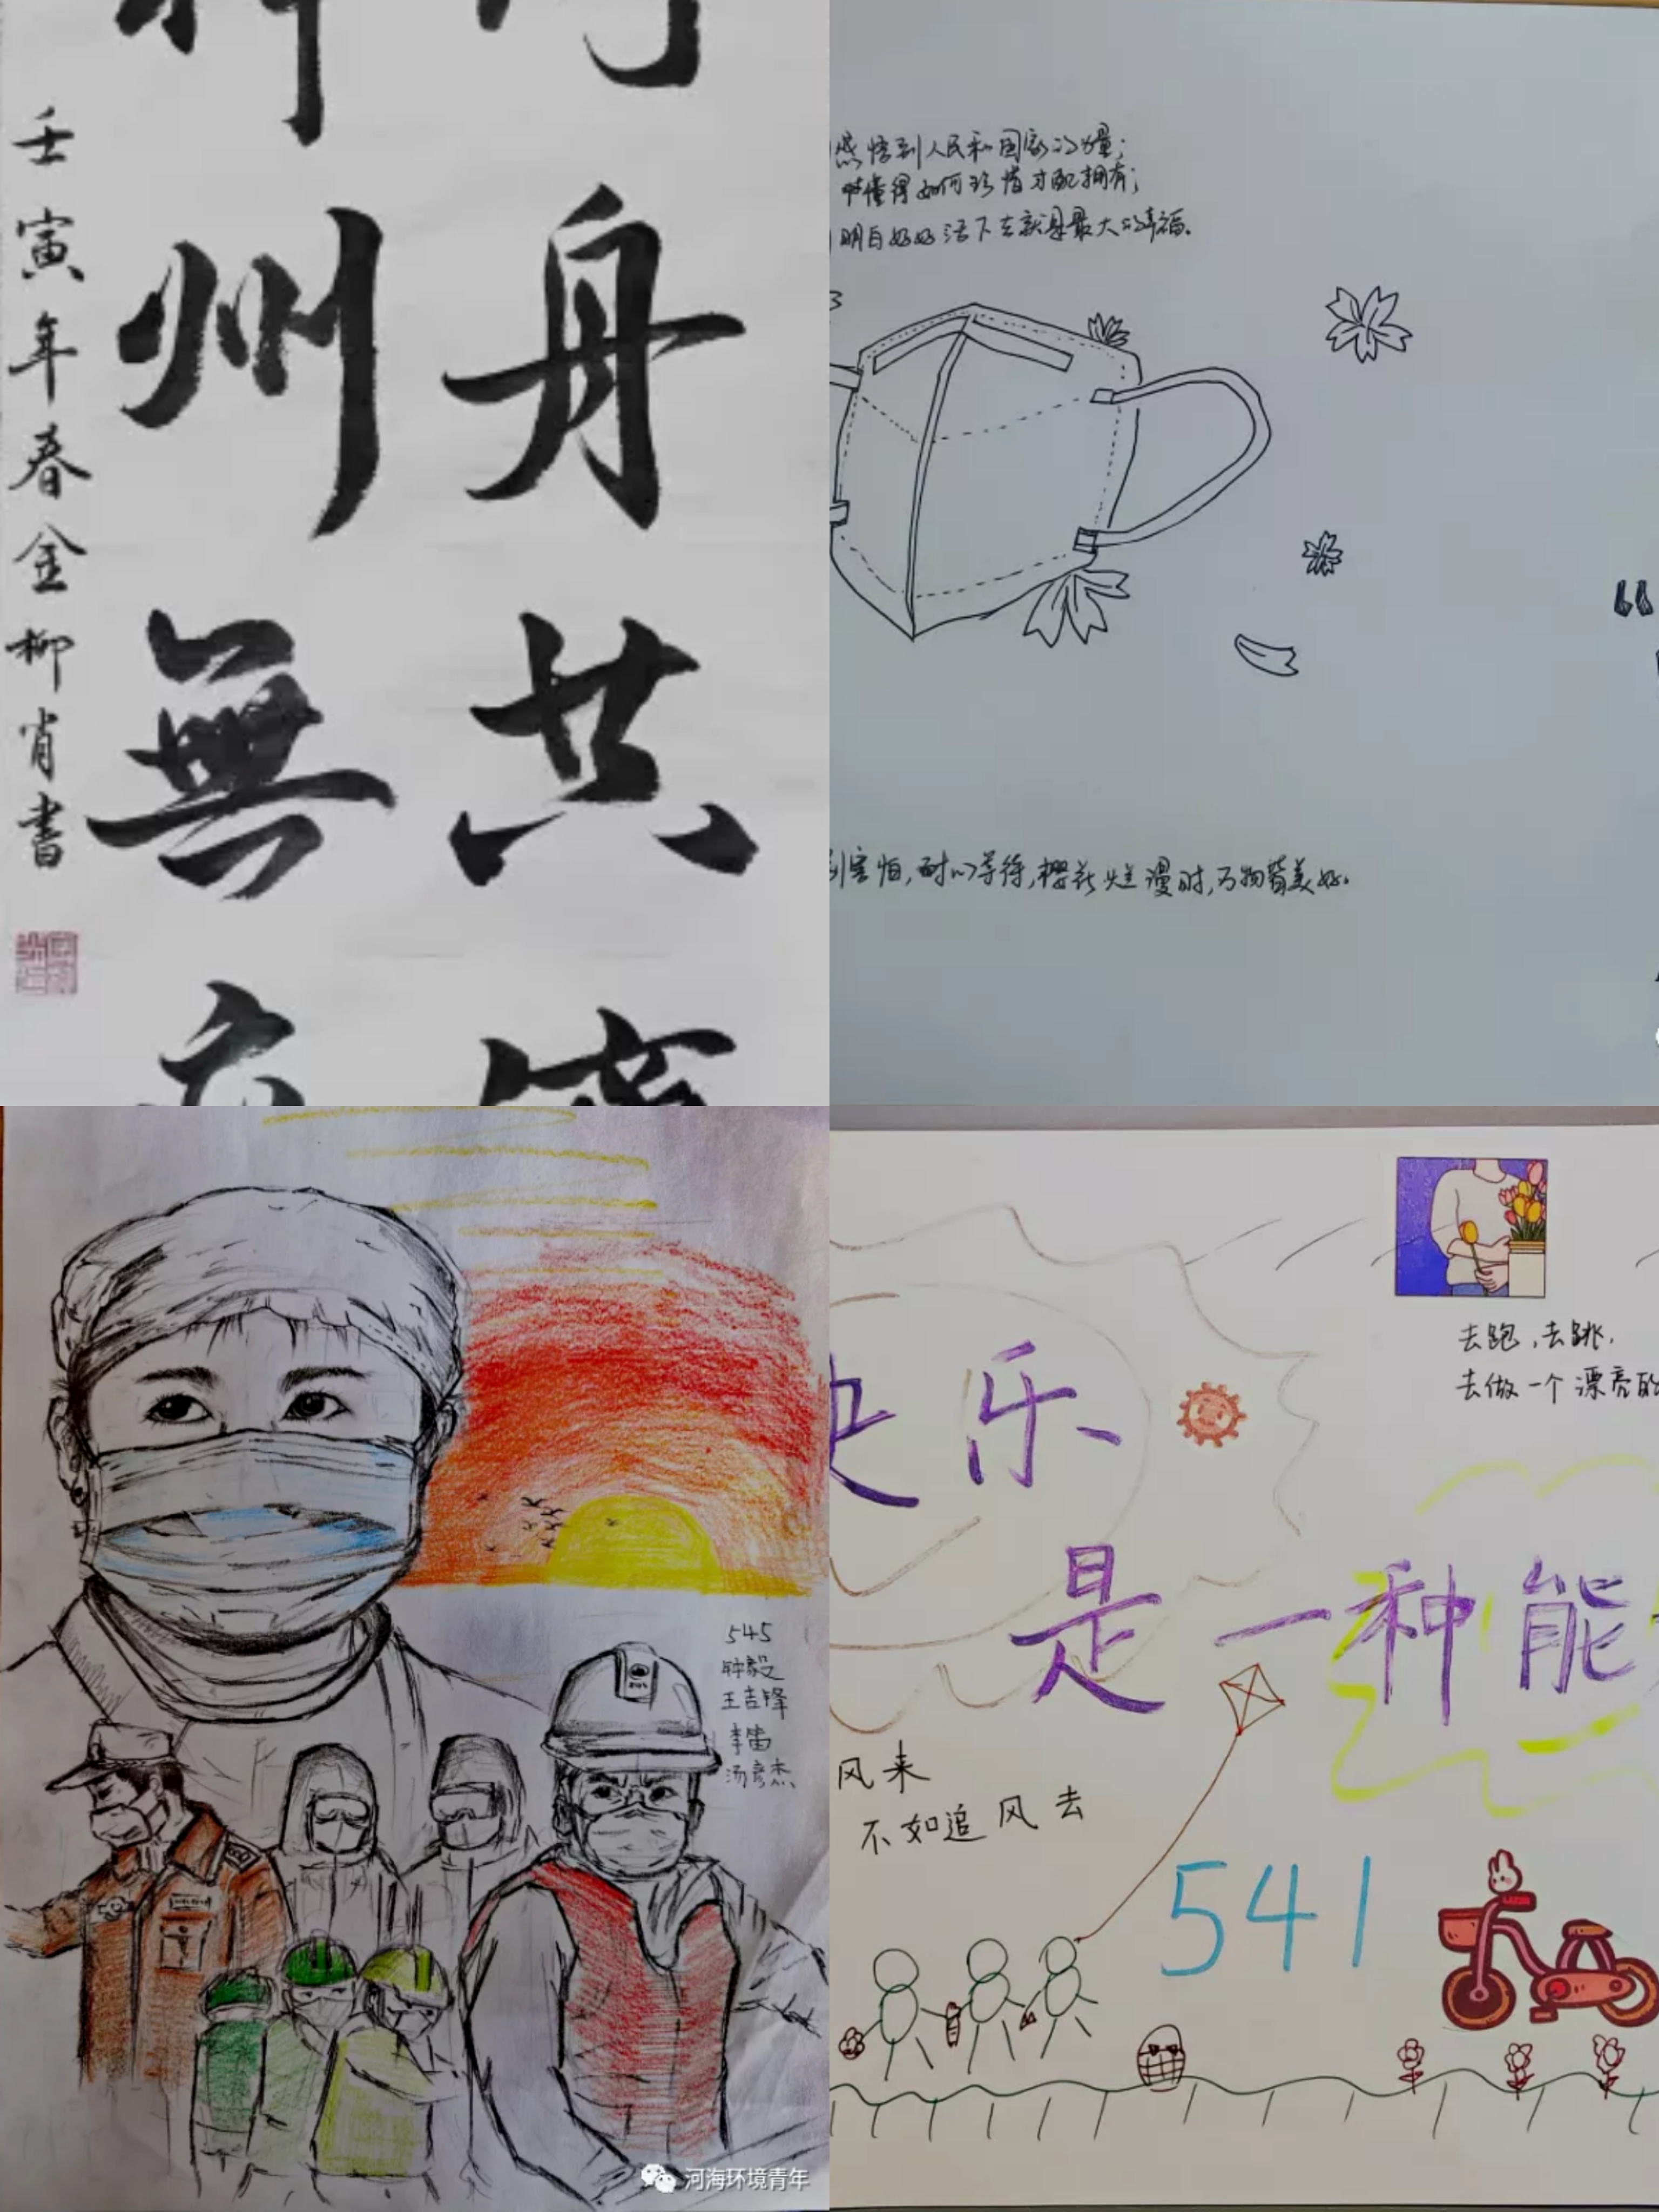 舟共
州無
壬寅年春金柳肖書
感悟到人民和国家的力量；
才懂得如何珍惜才配拥有；
明白好好活下去就是最大的幸福。
害怕，耐心等待，樱花烂漫时，万物皆美好。
545
钟毅
王吉锋
李雷
汤彦杰
河海环境青年
去跑，去跳，
去做一个漂亮的
快乐
是一种能
风来
不如追风去
541